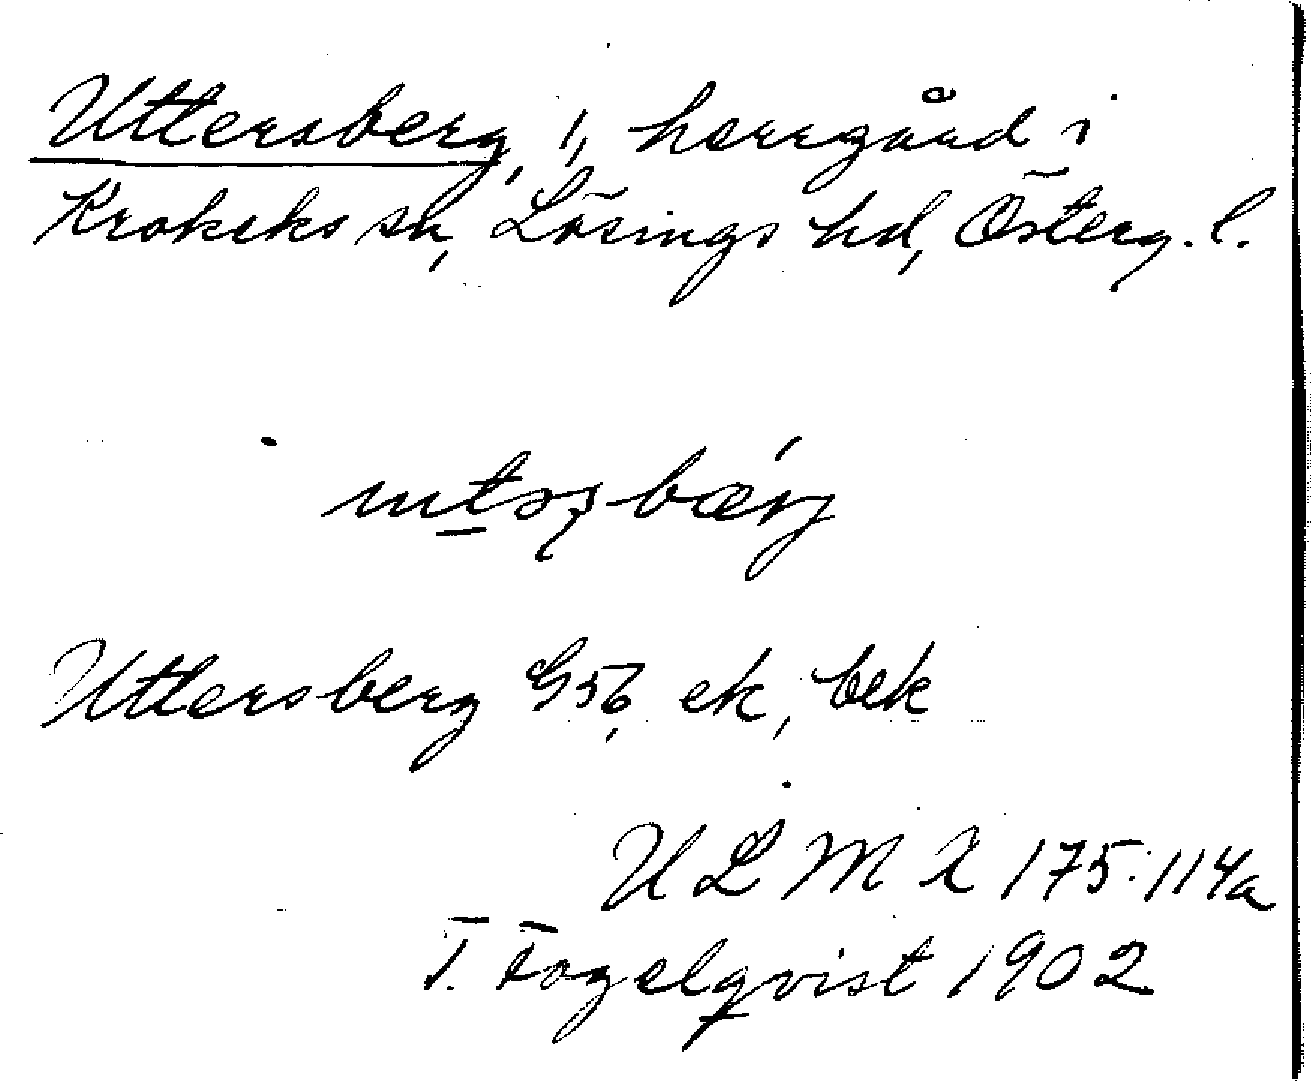 Uttersberg, 1, herrgård i
Krokeks sn, Lösings hd, Österg. l.
Uttersberg G56, ek, bek
U L M A 175:114a
T. Fogelqvist 1902